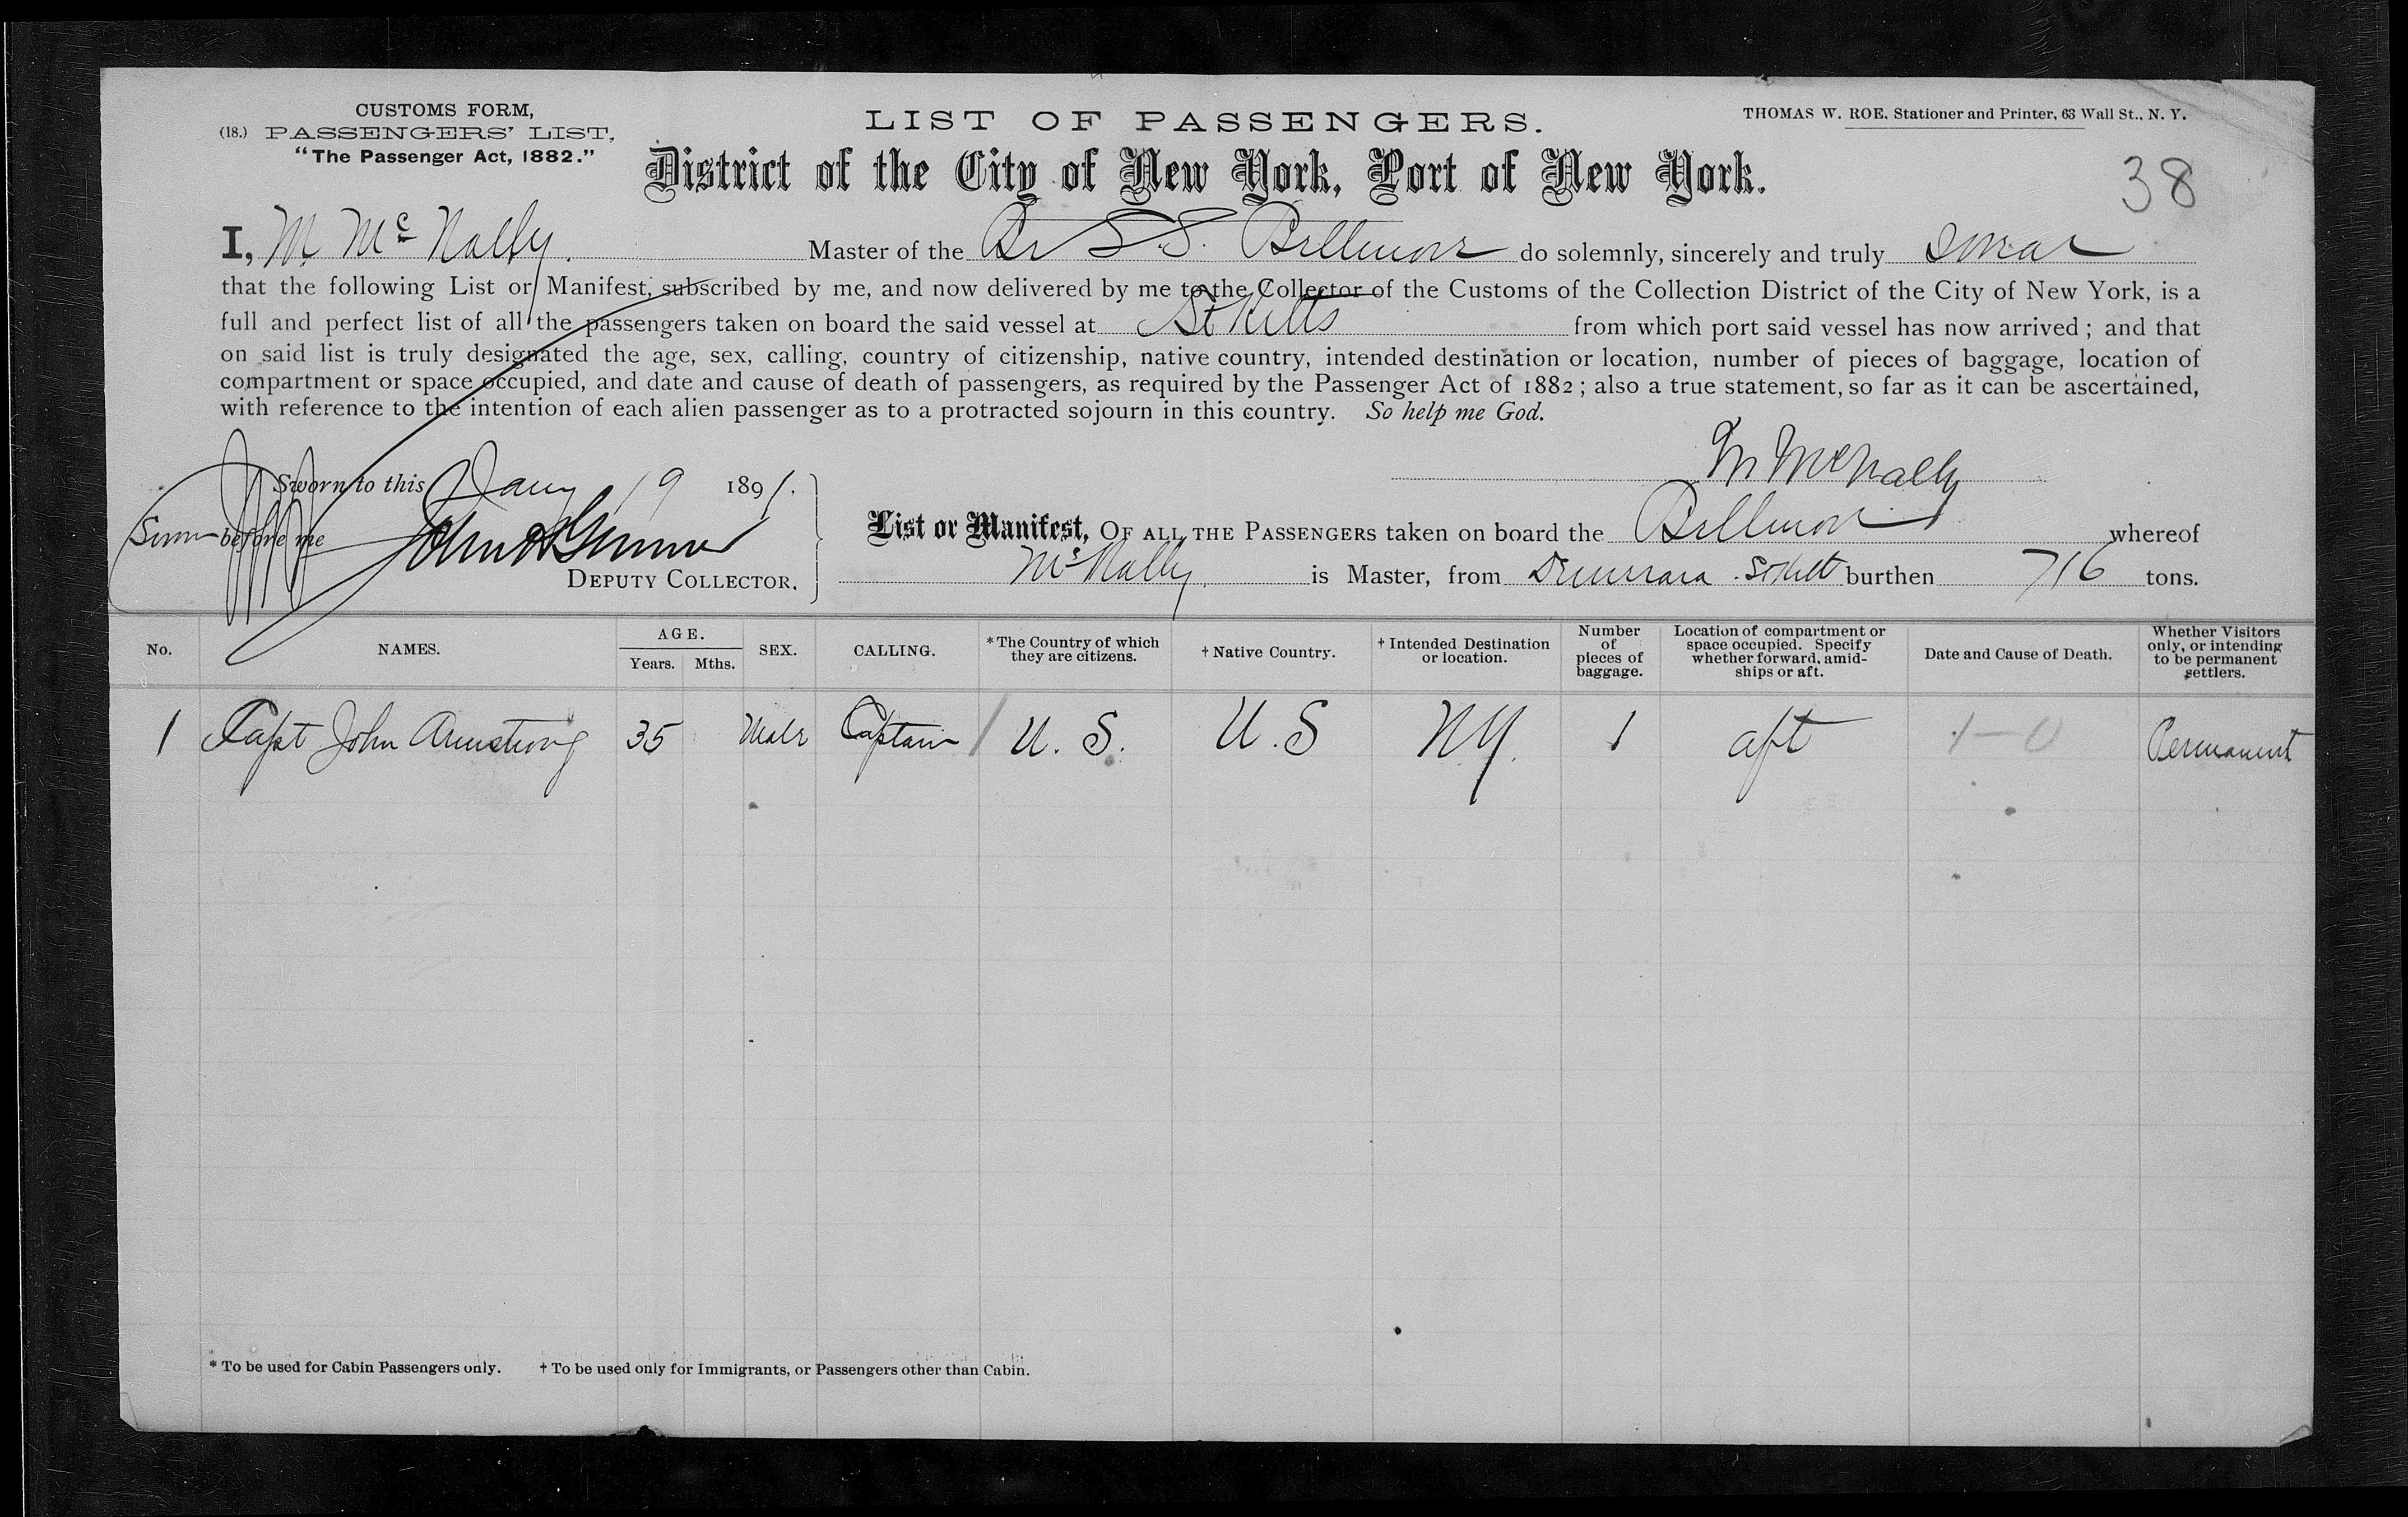 CUSTOMS FORM,
(18.) PASSENGERS' LIST,
"The Passenger Act, 1882."
LIST OF PASSENGERS.
THOMAS W. ROE, Stationer and Printer, 63 Wall St., N. Y.
District of the City of New York, Port of New York.
38
I, M McNally. Master of the Br S.S. Bellmore do solemnly, sincerely and truly swear
that the following List or Manifest, subscribed by me, and now delivered by me to the Collector of the Customs of the Collection District of the City of New York, is a
full and perfect list of all the passengers taken on board the said vessel at St Kitts from which port said vessel has now arrived; and that
on said list is truly designated the age, sex, calling, country of citizenship, native country, intended destination or location, number of pieces of baggage, location of
compartment or space occupied, and date and cause of death of passengers, as required by the Passenger Act of 1882; also a true statement, so far as it can be ascertained,
with reference to the intention of each alien passenger as to a protracted sojourn in this country. So help me God.
M McNally
Sworn to this Jany 19 1891.
before me
DEPUTY COLLECTOR.
List or Manifest, OF ALL THE PASSENGERS taken on board the Bellmore whereof
McNally. is Master, from Demerara St Kitt burthen 716 tons.
No. NAMES. AGE. Years. Mths. SEX. CALLING. *The Country of which they are citizens. † Native Country. † Intended Destination or location. Number of pieces of baggage. Location of compartment or space occupied. Specify whether forward, amidships or aft. Date and Cause of Death. Whether Visitors only, or intending to be permanent settlers.
1 Capt John Armstrong 35 Male Captain U. S. U. S N.Y. 1 aft Permanent
* To be used for Cabin Passengers only. † To be used only for Immigrants, or Passengers other than Cabin.